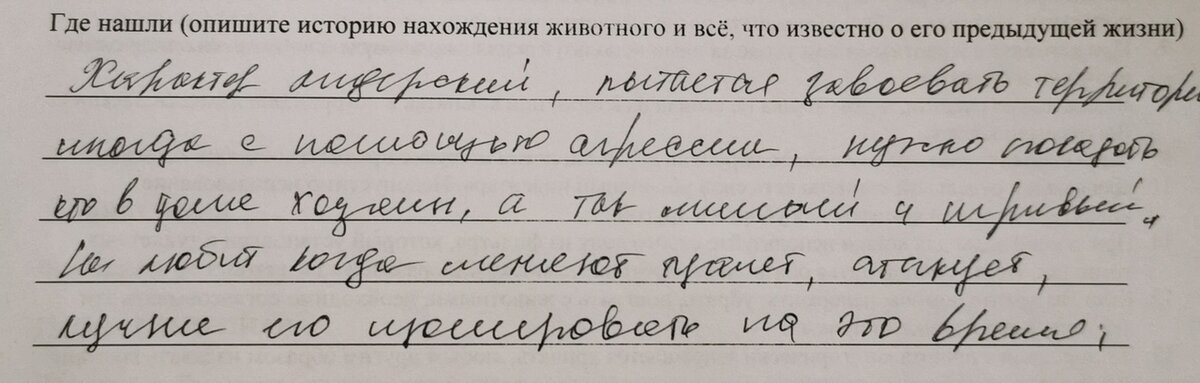 Где нашли (опишите историю нахождения животного и всё, что известно о его предыдущей жизни)
Характер лидерский, пытается завоевать территори
иногда с помощью агрессии, нужно показать
кто в доме хозяин, а так милый и игривый.
Не любит когда меняют туалет, атакует,
лучше его изолировать на это время,